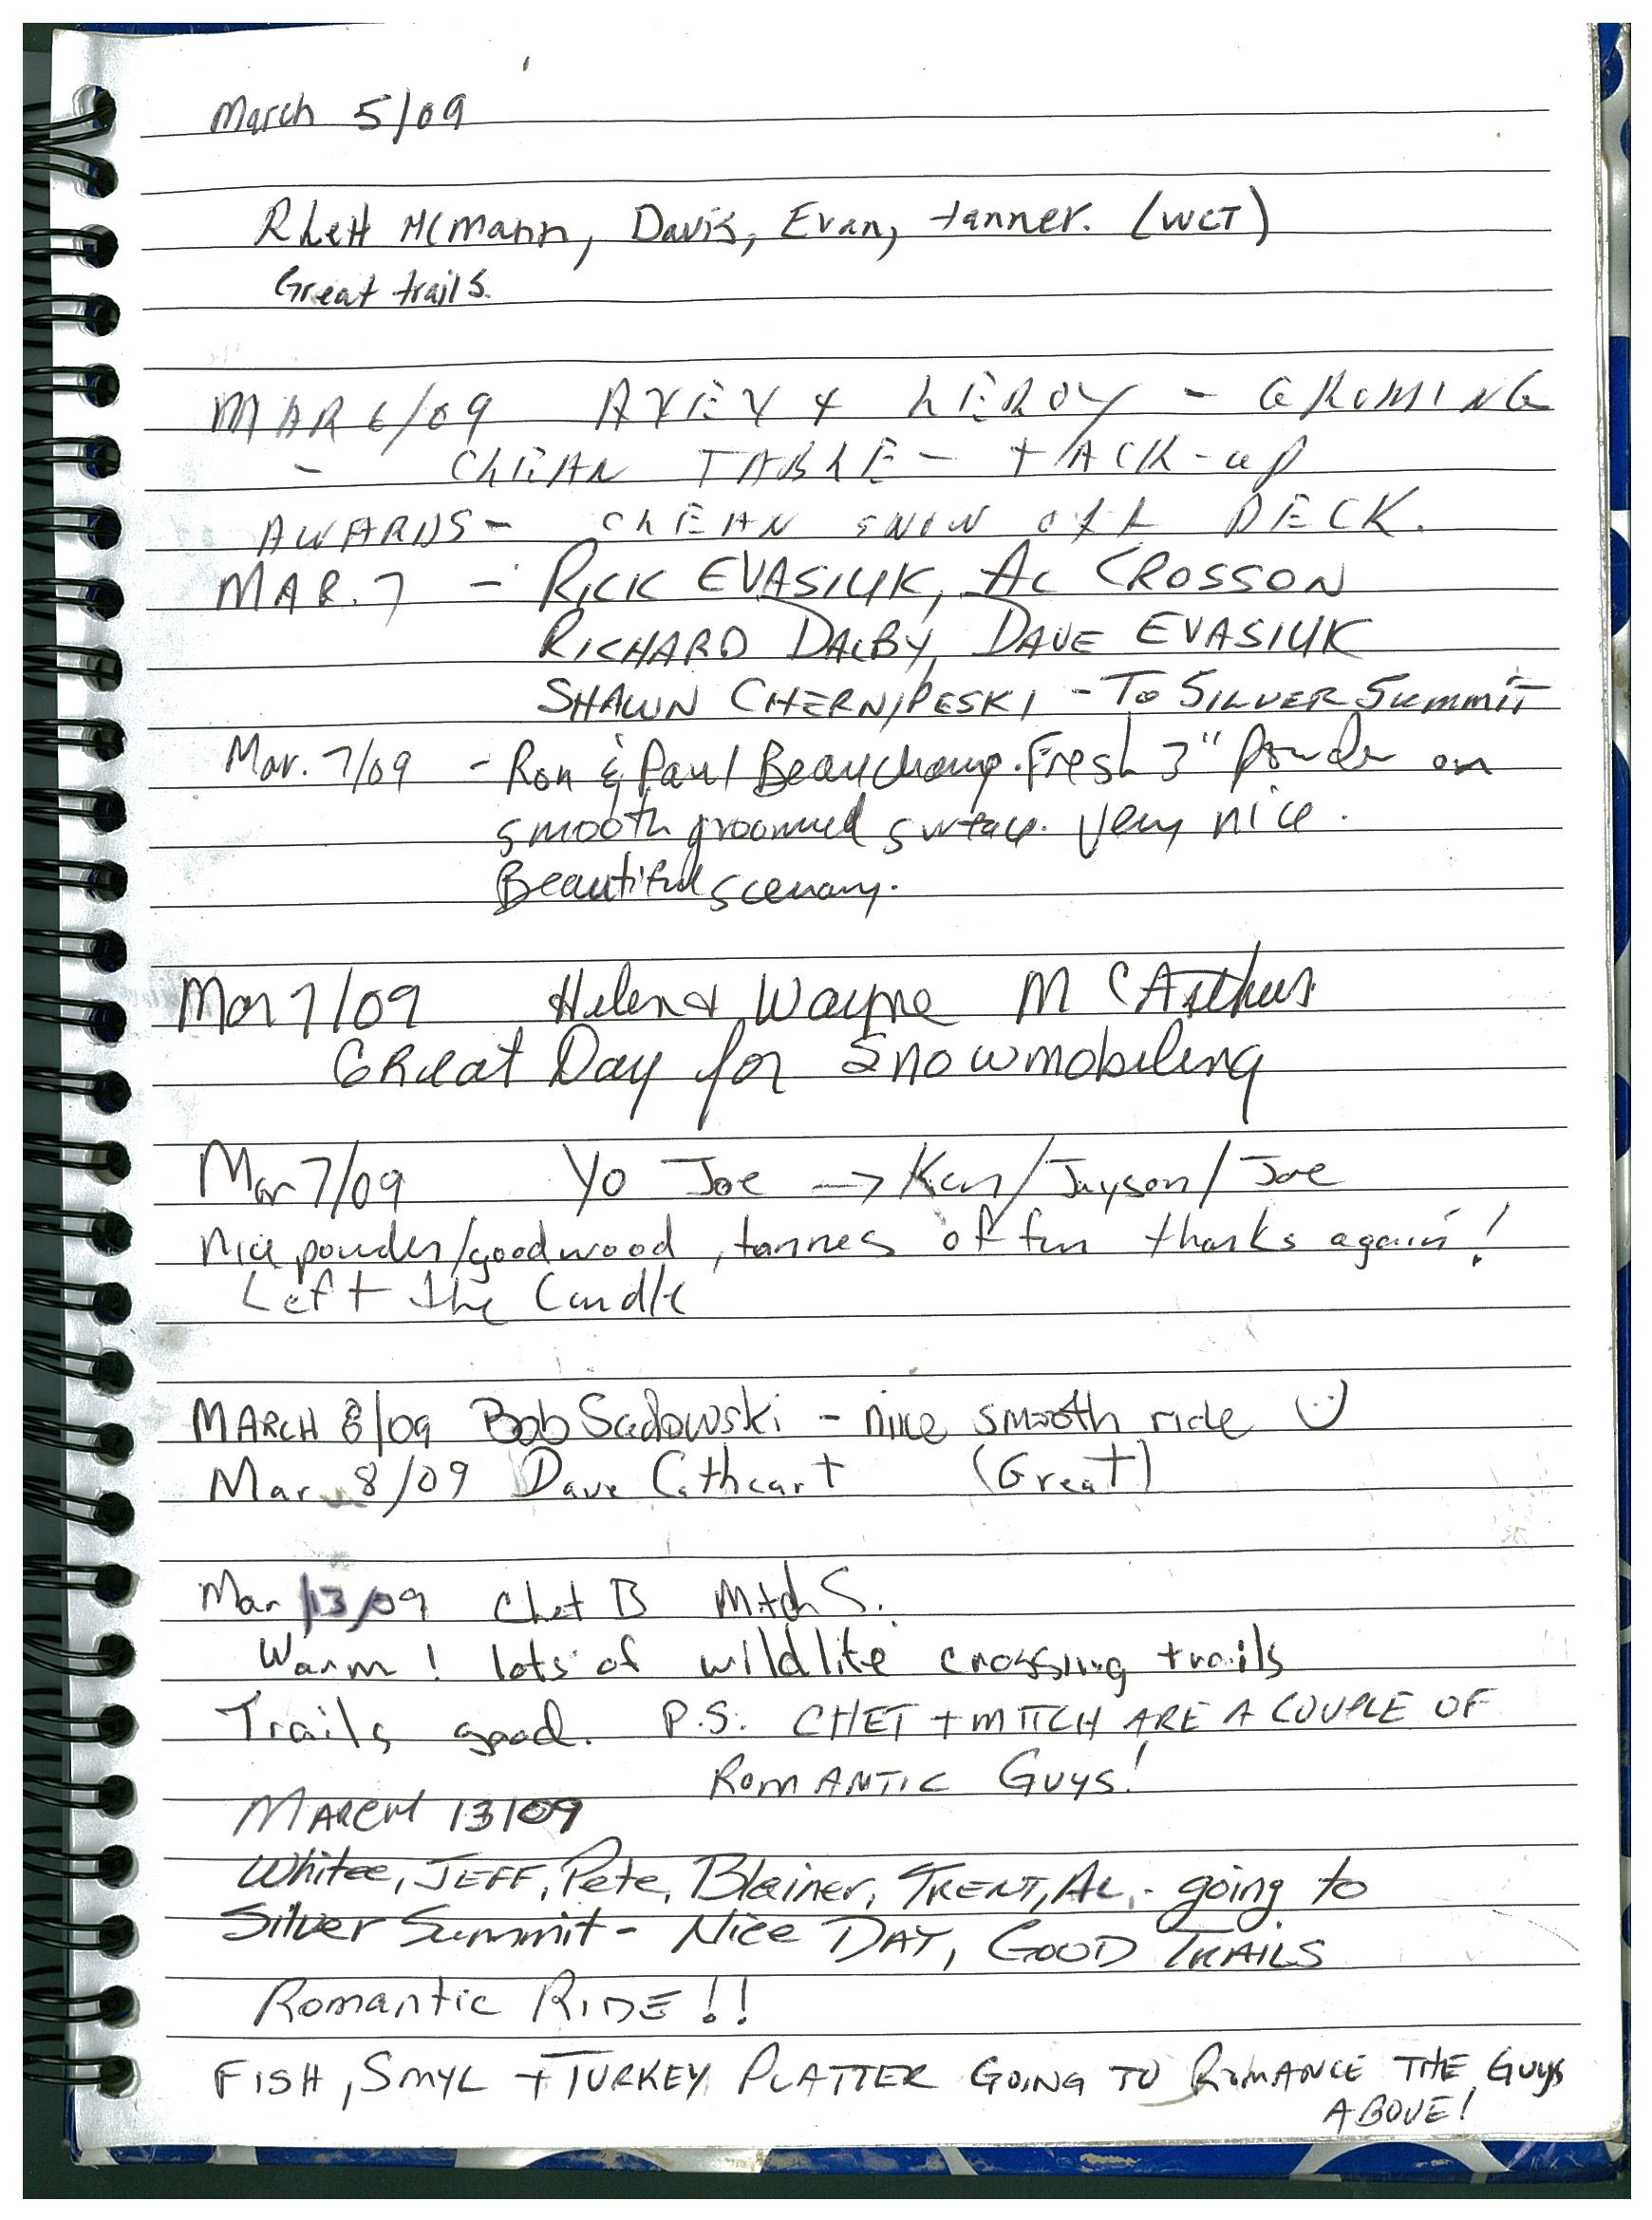 March 5/09
Rhett McMann, Davis, Evan, tanner. (WCT)
Great trails.
MAR 6/09 AXEY + LEROY - GROMING
- CLEAN TABLE - TACK-up
AWARDS - CLEAN SNOW OFF DECK.
MAR. 7 - RICK EVASIUK, AL CROSSON
RICHARD DALBY, DAVE EVASIUK
SHAWN CHERNIPESKI - TO SILVER SUMMIT
Mar. 7/09 - Ron & Paul Beauchamp. Fresh 3" Powder on
smooth groomed surface. Very nice.
Beautiful scenary.
Mar 7/09 Helen & Wayne McArthur
GReat Day for Snowmobiling
Mar 7/09 Yo Joe → Ken/Jayson/Joe
Nice powder/good wood, tonnes of fun thanks again!
Left the Candle
MARCH 8/09 Bob Sadowski - nice smooth ride
Mar 8/09 Dave Cathcart (Great)
Mar 13/09 Chet B Mitch S.
Warm! lots of wildlife crossing trails
Trails good. P.S. CHET + MITCH ARE A COUPLE OF
ROMANTIC GUYS!
MARCH 13/09
Whitee, JEFF, Pete, Blainer, TRENT, AL, - going to
Silver Summit - Nice DAY, GOOD TRAILS
Romantic RIDE!!
FISH, SMYL + TURKEY PLATTER GOING TO ROMANCE THE GUYS
ABOVE!